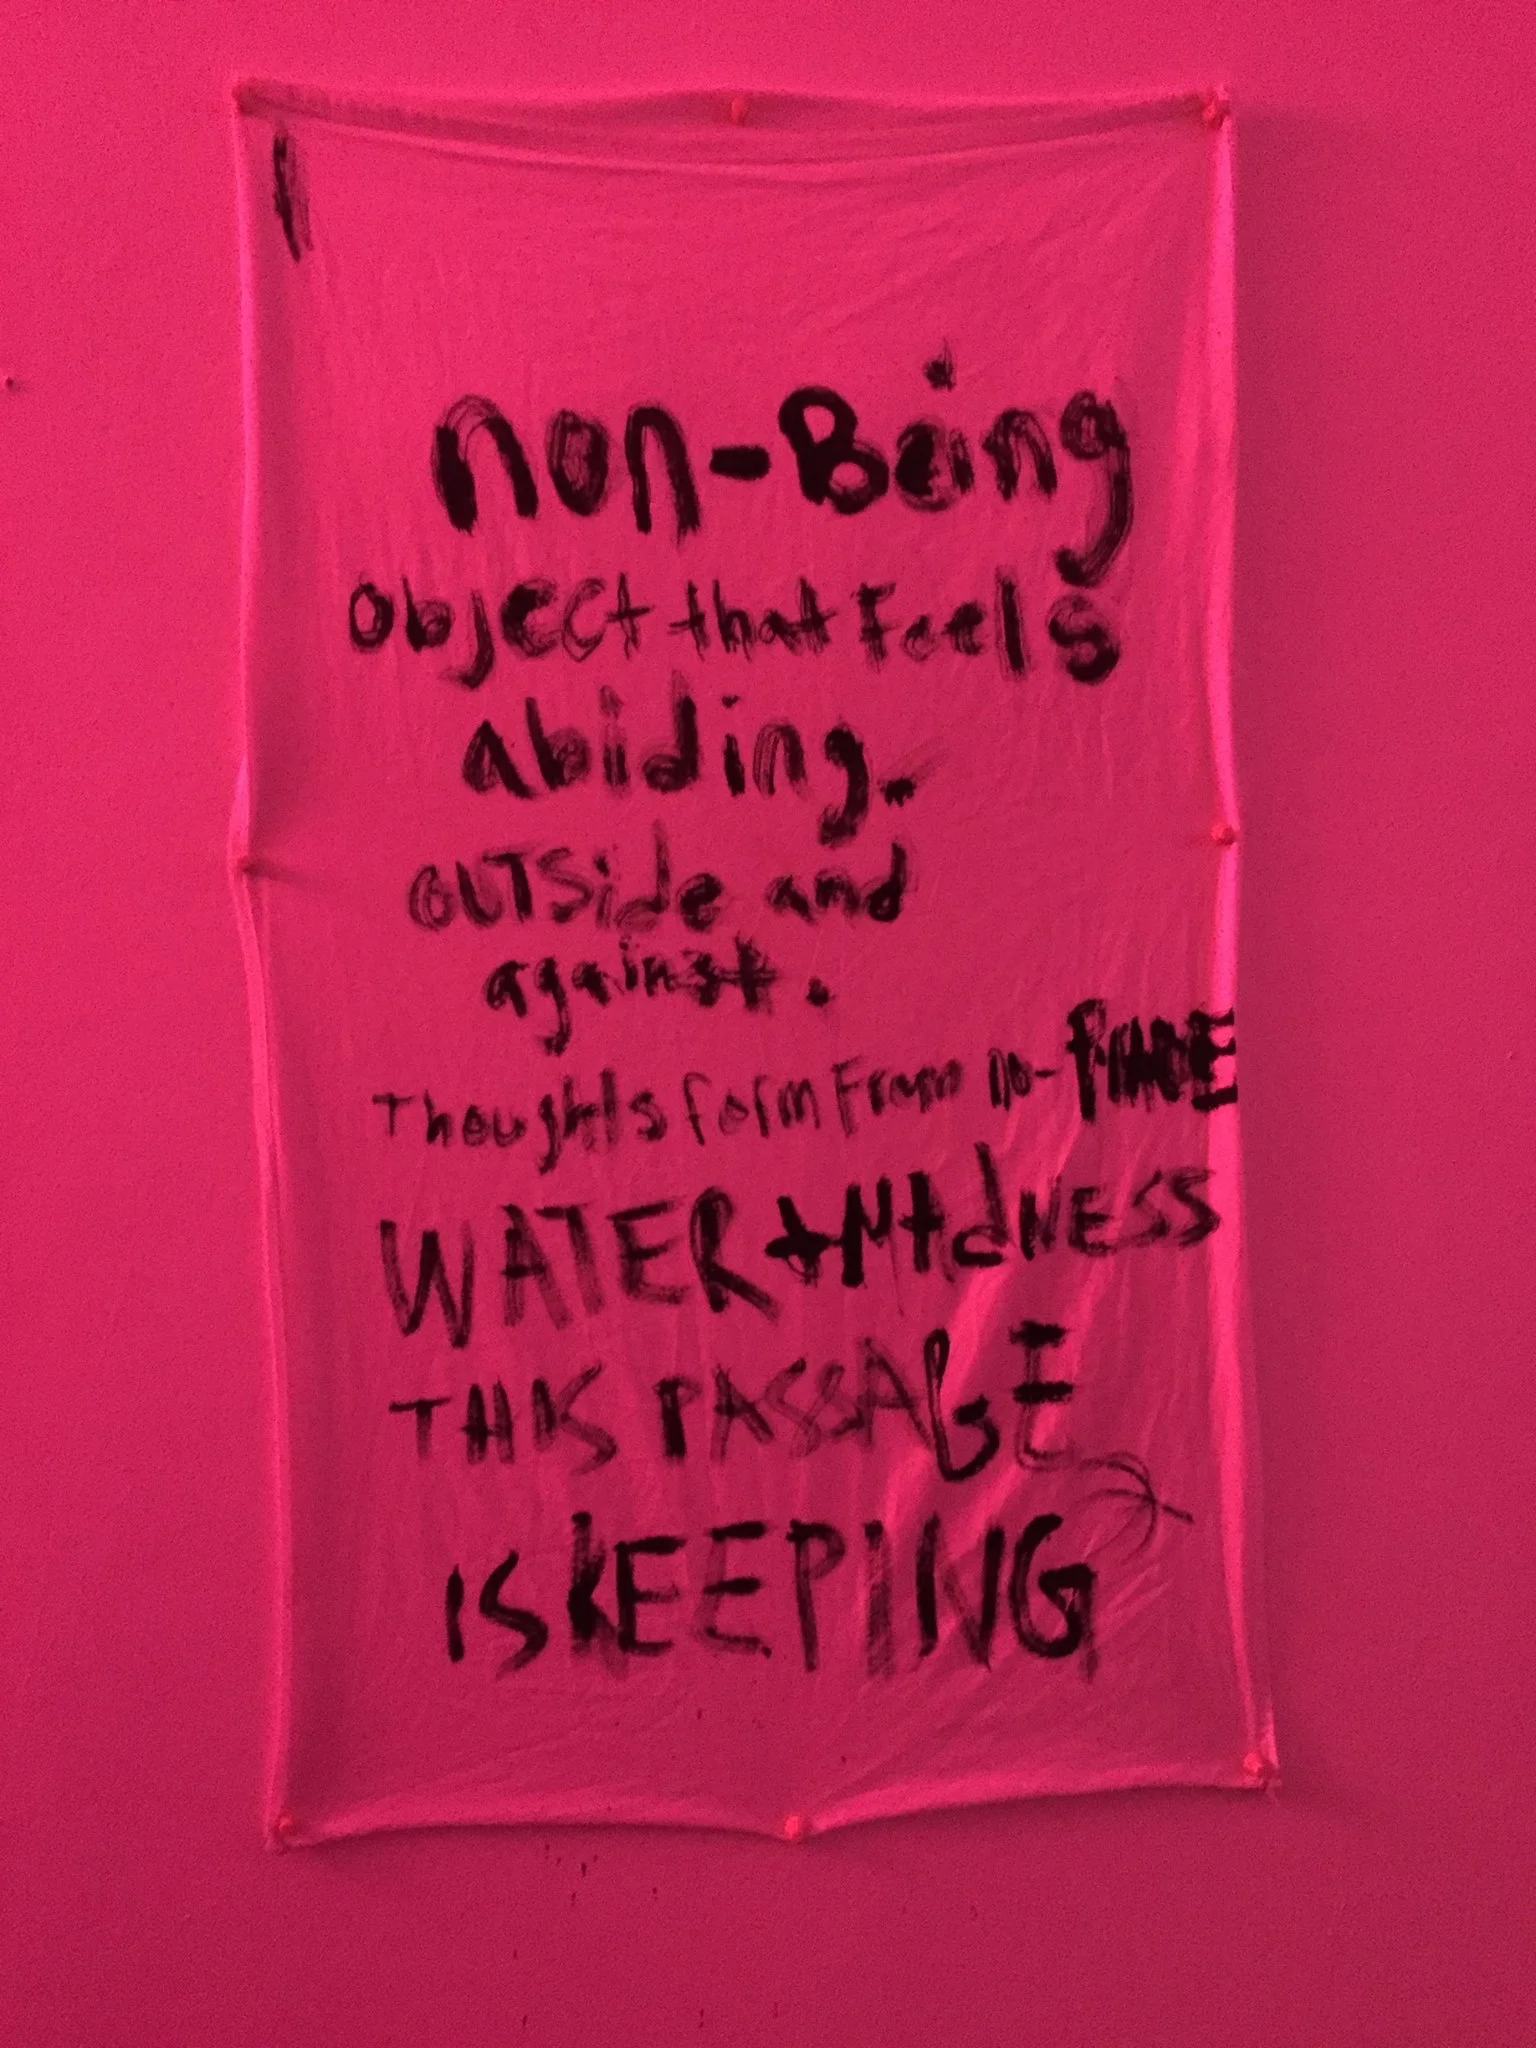 non-Being
Object that Feels
abiding.
OUTSide and
against.
Thoughts form From no-PLACE
WATER + MAdNESS
THIS PASSAGE
IS KEEPING